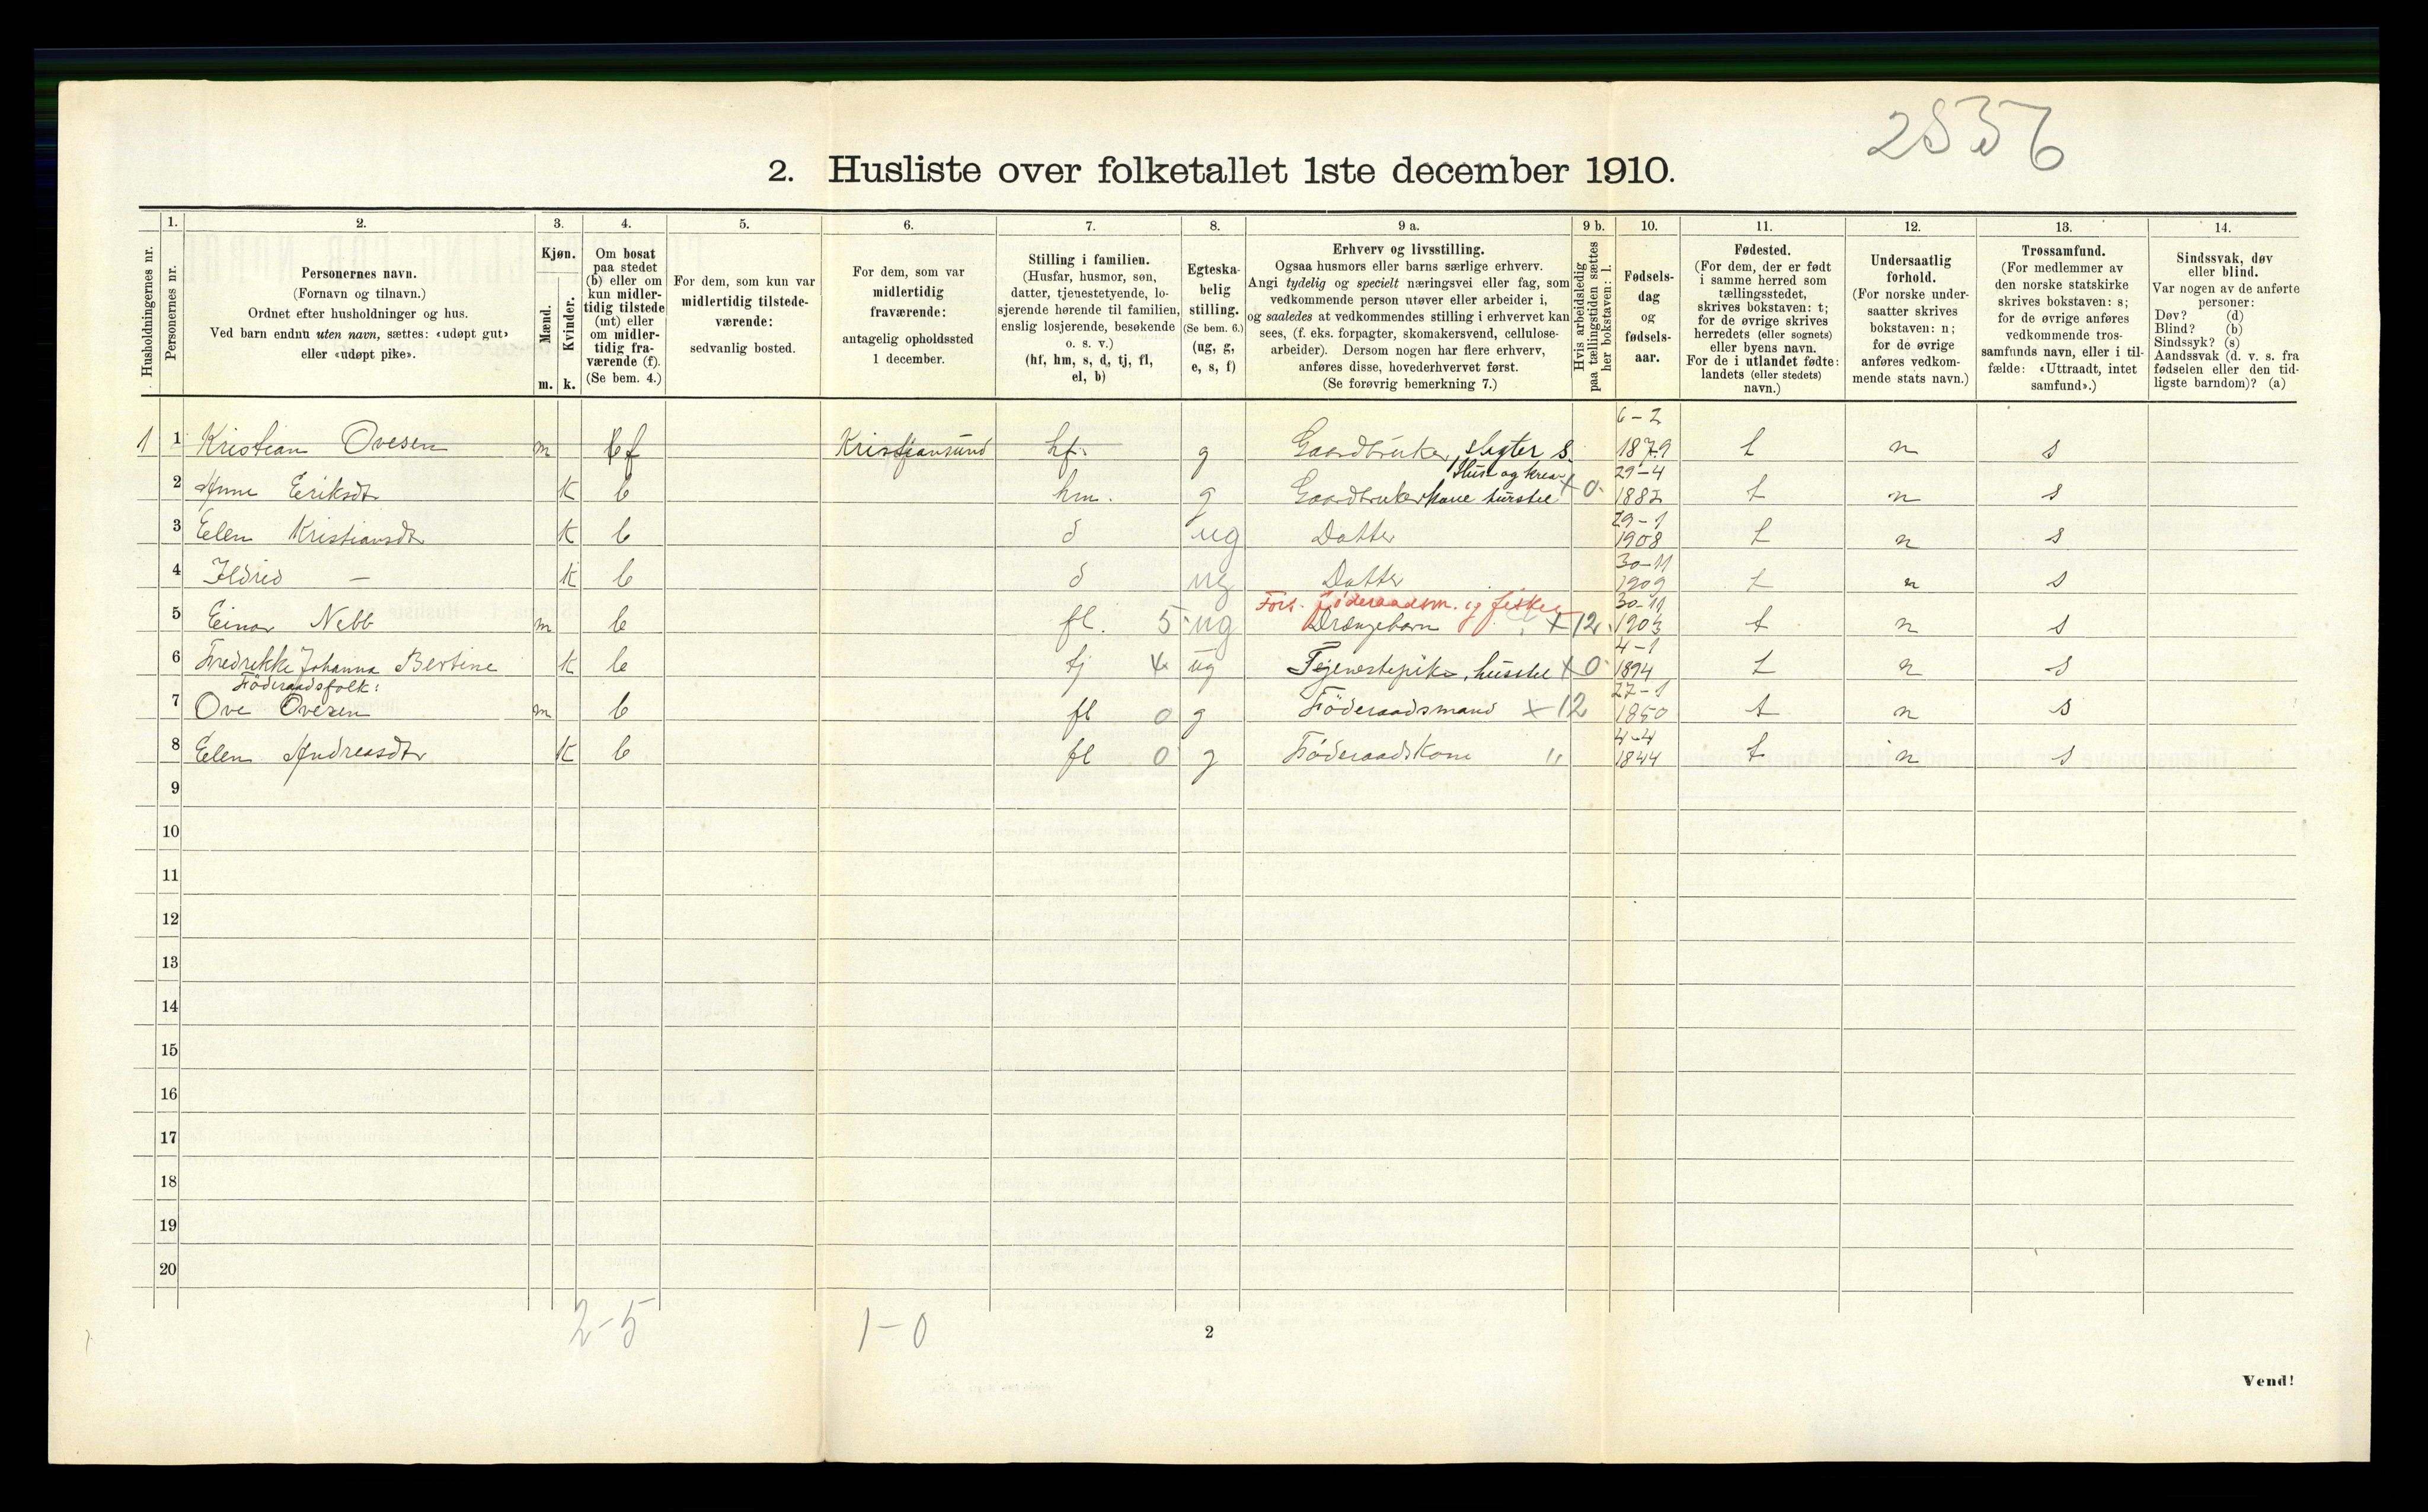 2536
2. Husliste over folketallet 1ste december 1910.
Husholdningernes nr.
1.
Personernes nr.
2.
Personernes navn.
(Fornavn og tilnavn.)
Ordnet efter husholdninger og hus.
Ved barn endnu uten navn, sættes: «udøpt gut»
eller «udøpt pike».
3.
Kjøn.
Mænd.
Kvinder.
m. k.
4.
Om bosat
paa stedet
(b) eller om
kun midler-
tidig tilstede
(mt) eller
om midler-
tidig fra-
værende (f).
(Se bem. 4.)
5.
For dem, som kun var
midlertidig tilstede-
værende:
sedvanlig bosted.
6.
For dem, som var
midlertidig
fraværende:
antagelig opholdssted
1 december.
7.
Stilling i familien.
(Husfar, husmor, søn,
datter, tjenestetyende, lo-
sjerende hørende til familien,
enslig losjerende, besøkende
o. s. v.)
(hf, hm, s, d, tj, fl,
el, b)
8.
Egteska-
belig
stilling.
(Se bem. 6.)
(ug, g,
e, s, f)
9 a.
Erhverv og livsstilling.
Ogsaa husmors eller barns særlige erhverv.
Angi tydelig og specielt næringsvei eller fag, som
vedkommende person utøver eller arbeider i,
og saaledes at vedkommendes stilling i erhvervet kan
sees, (f. eks. forpagter, skomakersvend, cellulose-
arbeider). Dersom nogen har flere erhverv,
anføres disse, hovederhvervet først.
(Se forøvrig bemerkning 7.)
9 b.
Hvis arbeidsledig
paa tællingstiden sættes
her bokstaven: l.
10.
Fødsels-
dag
og
fødsels-
aar.
11.
Fødested.
(For dem, der er født
i samme herred som
tællingsstedet,
skrives bokstaven: t;
for de øvrige skrives
herredets (eller sognets)
eller byens navn.
For de i utlandet fødte:
landets (eller stedets)
navn.)
12.
Undersaatlig
forhold.
(For norske under-
saatter skrives
bokstaven: n;
for de øvrige
anføres vedkom-
mende stats navn.)
13.
Trossamfund.
(For medlemmer av
den norske statskirke
skrives bokstaven: s;
for de øvrige anføres
vedkommende tros-
samfunds navn, eller i til-
fælde: «Uttraadt, intet
samfund».)
14.
Sindssvak, døv
eller blind.
Var nogen av de anførte
personer:
Døv? (d)
Blind? (b)
Sindssyk? (s)
Aandssvak (d. v. s. fra
fødselen eller den tid-
ligste barndom)? (a)
1 1 Kristian Ovesen m f Kristiansund hf. g Gaardbruker, S. 6-2 1879 t n s
2 Anne Eriksdtr k b hm. g Gaardbrukerkone husstel Hus og krea- x 0 29-4 1882 t n s
3 Elen Kristiansdtr k b d ug Datter 29-1 1908 t n s
4 Ildrid — k b d ug Datter 30-11 1909 t n s
5 Einar Nebb m b fl. 5 ug Fors. föderaadsm. og fisker x 12 30-11 1903 t n s
6 Fredrikke Johanna Bertine k b tj x ug Tejenestepike, husstel x 0 4-1 1894 t n s
Föderaadsfolk:
7 Ove Ovesen m b fl 0 g Föderaadsmand x 12 27-1 1850 t n s
8 Elen Andreasdtr k b fl 0 g Föderaadskone " 4-4 1844 t n s
9
10
11
12
13
14
15
16
17
18
19
20
2-5 1-0
2
Vend!